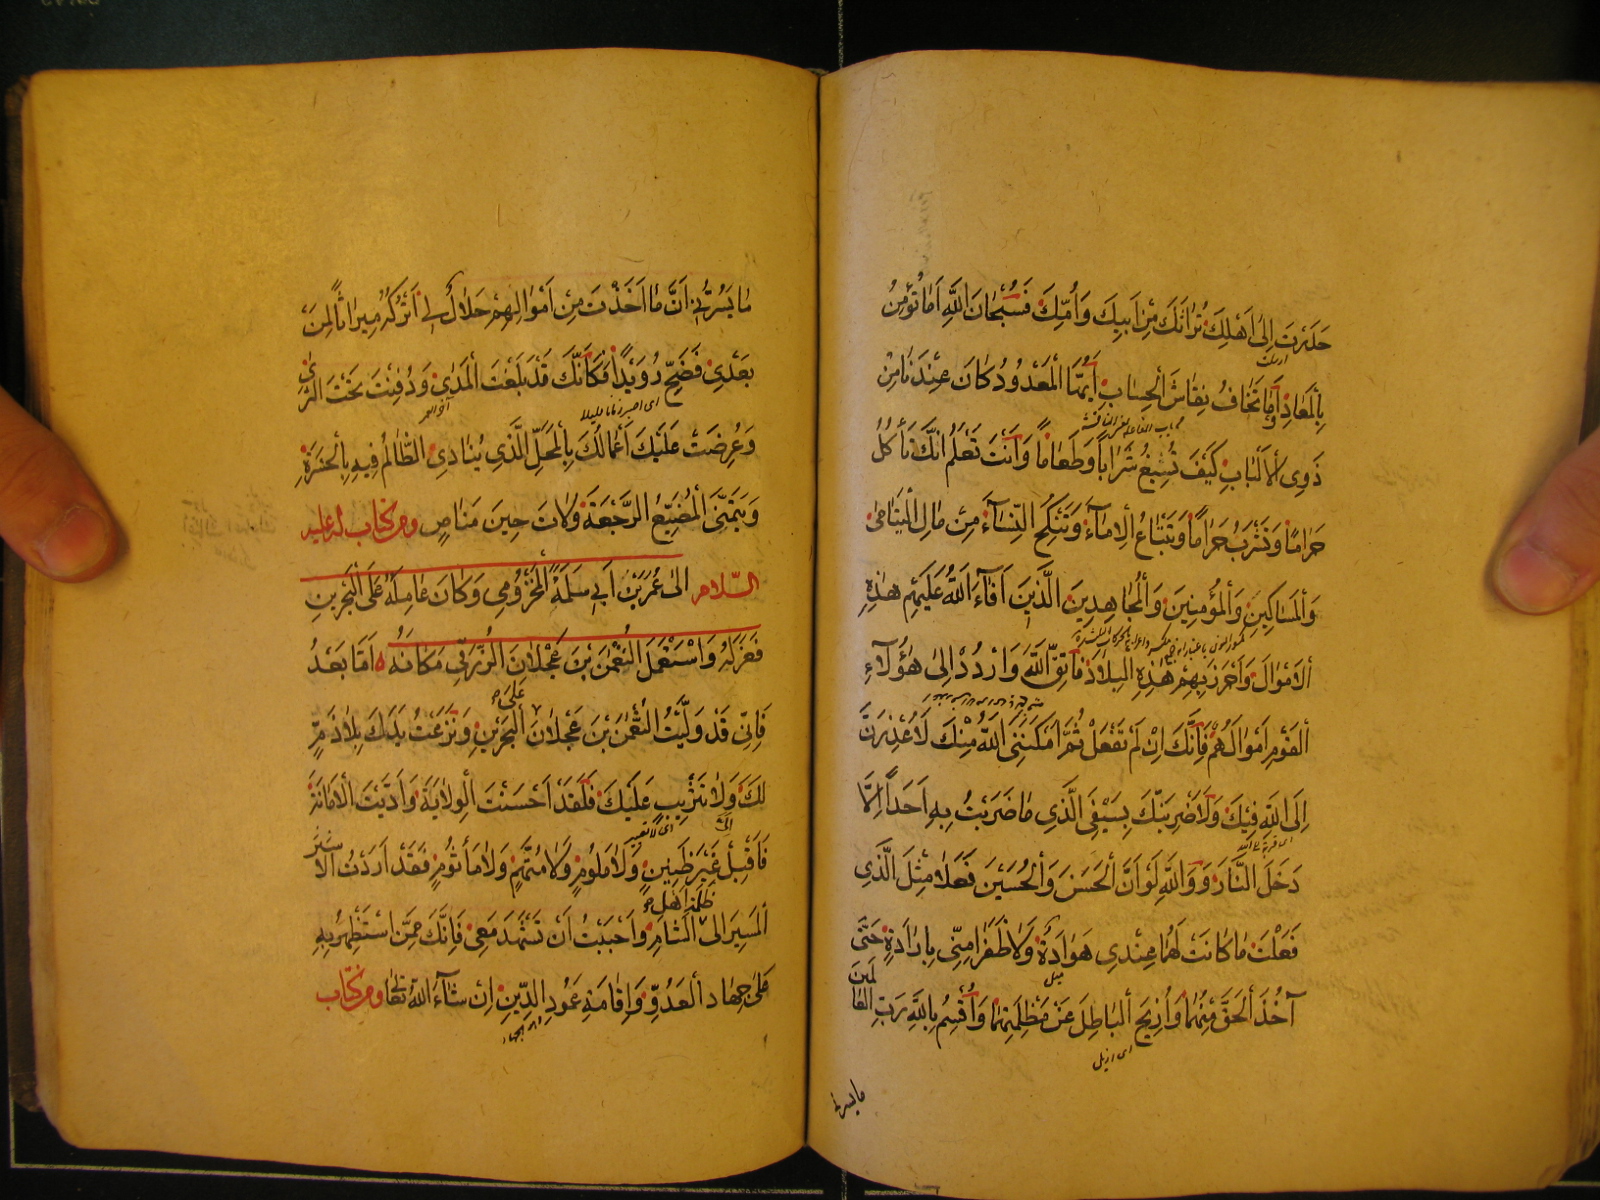 حَدَرْتَ اِلىٰ اَهْلِكَ تُرَاثَكَ مِنْ اَبيكَ وَاُمِّكَ فَسُبْحَانَ اللهِ اَمَا تُؤْمِنُ
بِالْمَعَادِ اَوَمَا تَخَافُ نِقَاشَ الْحِسَابِ اَيُّهَا الْمَعْدُودُ كَانَ عِنْدَنَا مِنْ
ذَوِى الْاَلْبَابِ كَيْفَ تُسيغُ شَرَاباً وَطَعَاماً وَاَنْتَ تَعْلَمُ اَنَّكَ تَأْكُلُ
حَرَاماً وَتَشْرَبُ حَرَاماً وَتَبْتَاعُ الْاِمَاءَ وَتَنْكِحُ النِّسَاءَ مِنْ مَالِ الْيَتَامىٰ
وَالْمَسَاكِينِ وَالْمُؤْمِنِينَ وَالْمُجَاهِدِينَ الَّذِينَ اَفَاءَ اللهُ عَلَيْهِمْ هٰذِهِ
الْاَمْوَالَ وَاَحْرَزَ بِهِمْ هٰذِهِ الْبِلَادَ فَاتَّقِ اللهَ وَارْدُدْ اِلىٰ هٰؤُلَاءِ
الْقَوْمِ اَمْوَالَهُمْ فَاِنَّكَ اِنْ لَمْ تَفْعَلْ ثُمَّ اَمْكَنَنِى اللهُ مِنْكَ لَاُعْذِرَنَّ
اِلَى اللهِ فِيكَ وَلَاَضْرِبَنَّكَ بِسَيْفِى الَّذِى مَا ضَرَبْتُ بِهِ اَحَداً اِلَّا
دَخَلَ النَّارَ وَ وَاللهِ لَوْ اَنَّ الْحَسَنَ وَالْحُسَيْنَ فَعَلَا مِثْلَ الَّذِى
فَعَلْتَ مَا كَانَتْ لَهُمَا عِنْدِى هَوَادَةٌ وَلَا ظَفِرَا مِنِّى بِاِرَادَةٍ حَتّىٰ
ميل
آخُذَ الْحَقَّ مِنْهُمَا وَاُزِيحَ الْبَاطِلَ عَنْ مَظْلِمَتِهِمَا وَاُقْسِمُ بِاللهِ رَبِّ الْعَالَمِينَ
اى ازيل
مايسرنى
مَا يَسُرُّنِى اَنَّ مَا اَخَذْتَ مِنْ اَمْوَالِهِمْ حَلَالٌ لِى اَتْرُكُهُ مِيرَاثاً لِمَنْ
بَعْدِى فَضَحِّ رُوَيْداً فَكَاَنَّكَ قَدْ بَلَغْتَ الْمَدىٰ وَدُفِنْتَ تَحْتَ الثَّرىٰ
اى اصبر زمانا قليلا
آخر العمر
وَعُرِضَتْ عَلَيْكَ اَعْمَالُكَ بِالْمَحَلِّ الَّذِى يُنَادِى الظَّالِمُ فِيهِ بِالْحَسْرَةِ
وَيَتَمَنَّى الْمُضَيِّعُ الرَّجْعَةَ وَلَاتَ حِينَ مَنَاصٍ ومن كتاب له عليه
السّلام الىٰ عُمَرَ بْنِ اَبِى سَلَمَةَ الْمَخْزُومِى وَكَانَ عَامِلَهُ عَلَى الْبَحْرَيْنِ
فَعَزَلَهُ وَاسْتَعْمَلَ النُّعْمٰنَ بْنَ عَجْلَانَ الزُّرَقِى مَكَانَهُ ه اَمَّا بَعْدُ
فَاِنِّى قَدْ وَلَّيْتُ النُّعْمٰنَ بْنَ عَجْلَانَ عَلَى الْبَحْرَيْنِ وَنَزَعْتُ يَدَكَ بِلَا ذَمٍّ
لَكَ وَلَا تَثْرِيبٍ عَلَيْكَ فَلَقَدْ اَحْسَنْتَ الْوِلَايَةَ وَاَدَّيْتَ الْاَمَانَةَ
اى لا تعيير
فَاَقْبِلْ غَيْرَ ظَنِينٍ وَلَا مَلُومٍ وَلَا مُتَّهَمٍ وَلَا مَأْثُومٍ فَقَدْ اَرَدْتُ
الْمَسِيرَ اِلىٰ ظَلَمَةِ اَهْلِ الشَّامِ وَاَحْبَبْتُ اَنْ تَشْهَدَ مَعِى فَاِنَّكَ مِمَّنْ اَسْتَظْهِرُ بِهِ
عَلىٰ جِهَادِ الْعَدُوِّ وَاِقَامَةِ عَمُودِ الدِّينِ اِنْ شَاءَ اللهُ تَعَالىٰ ومن كتاب